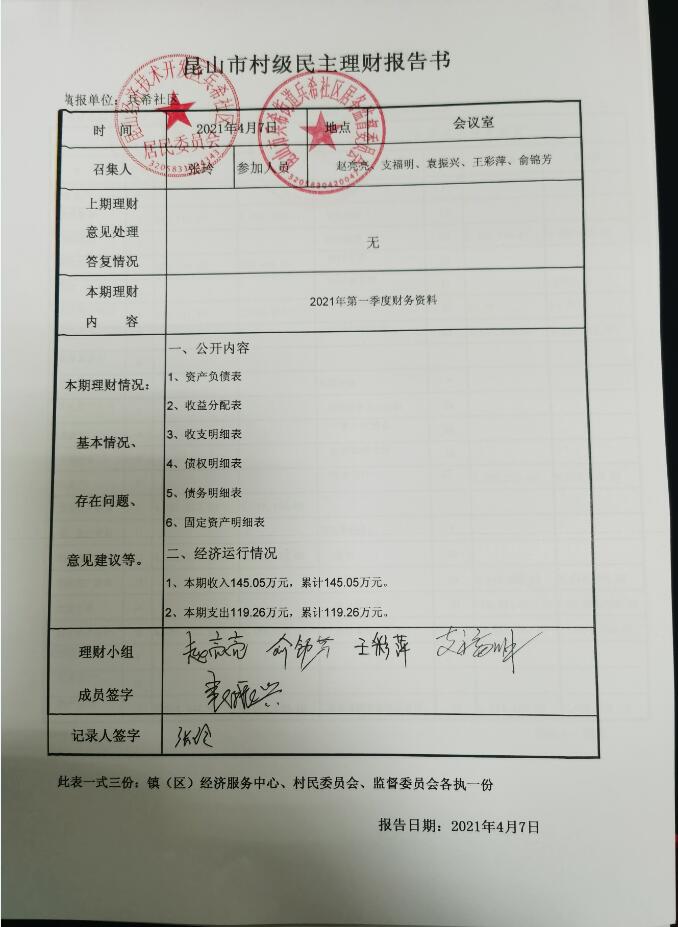 昆山市村级民主理财报告书
填报单位：兵希社区
时 间 2021年4月7日 地点 会议室
召集人 张玲 参加人员 赵亮亮、支福明、袁振兴、王彩萍、俞锦芳
上期理财
意见处理
答复情况
无
本期理财
内 容
2021年第一季度财务资料
本期理财情况：
基本情况、
存在问题、
意见建议等。
一、公开内容
1、资产负债表
2、收益分配表
3、收支明细表
4、债权明细表
5、债务明细表
6、固定资产明细表
二、经济运行情况
1、本期收入145.05万元，累计145.05万元。
2、本期支出119.26万元，累计119.26万元。
理财小组
成员签字
赵亮亮 俞锦芳 王彩萍 支福明
袁振兴
记录人签字 张玲
此表一式三份：镇（区）经济服务中心、村民委员会、监督委员会各执一份
报告日期：2021年4月7日
居民委员会